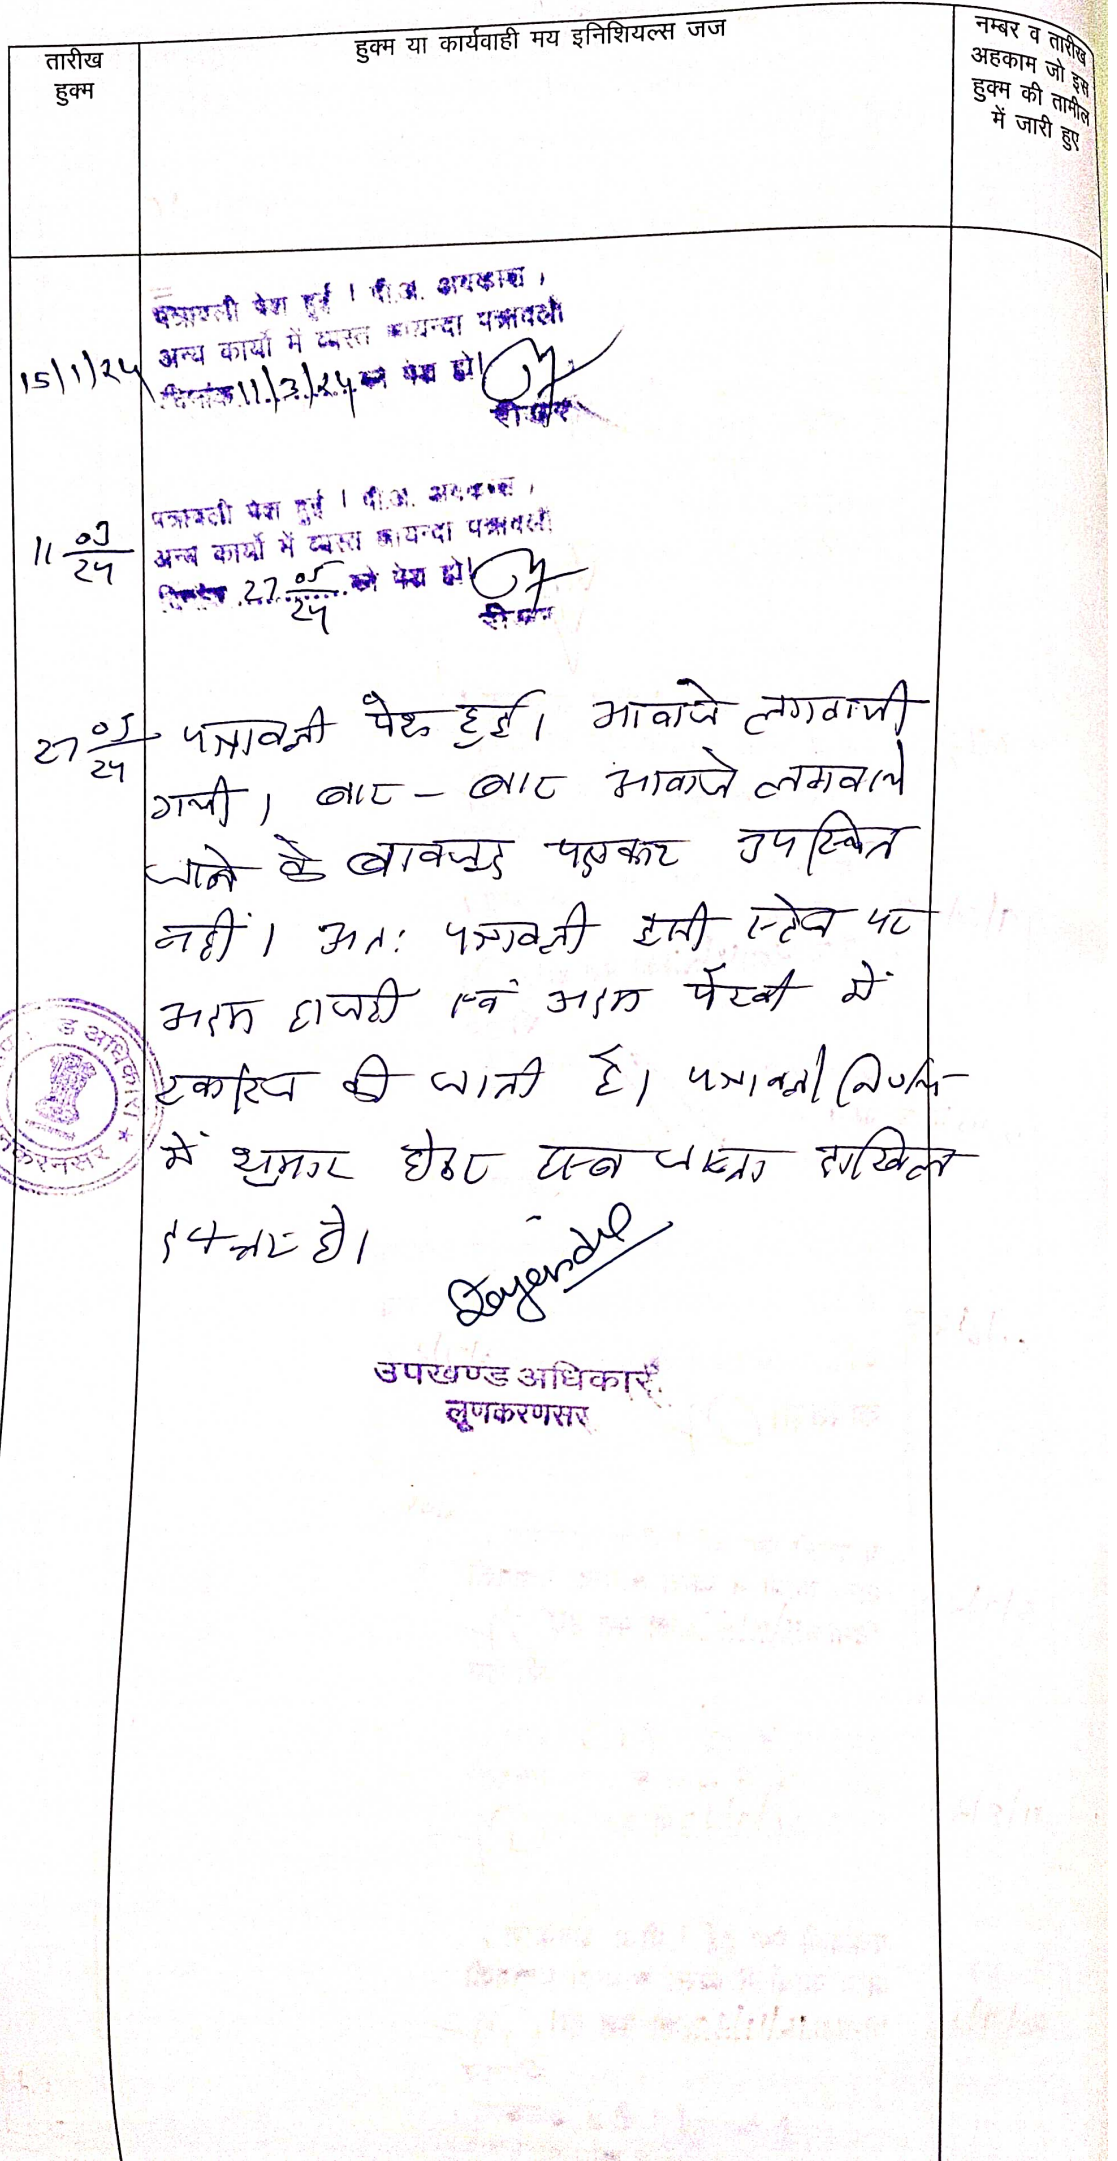 तारीख
हुक्म
हुक्म या कार्यवाही मय इनिशियल्स जज
नम्बर व तारीख
अहकाम जो इस
हुक्म की तामील
में जारी हुए
15/1/24
पत्रावली पेश हुई । पी.अ. अवकाश ,
अन्य कार्यो में व्यस्त कायन्दा पत्रावली
दिनांक 11/3/24 को पेश हो।
रीडर
11 03/24
पत्रावली पेश हुई । पी.अ. अवकाश ,
अन्य कार्यो में व्यस्त कायन्दा पत्रावली
दिनांक 27 05/24 को पेश हो।
रीडर
27 05/24
पत्रावली पेश हुई। आवाजे लगवायी
गयी। बार - बार आवाजे लगवाये
जाने के बावजूद पक्षकार उपस्थित
नहीं। अतः पत्रावली इसी स्टेज पर
अदम हाजरी एवं अदम पैरवी में
खारिज की जाती है। पत्रावली निर्णित
में शुमार होकर दाखिल
दफ्तर हो।
Rajendra
उपखण्ड अधिकारी
लूणकरणसर
ड अधिकारी ★
करनसर